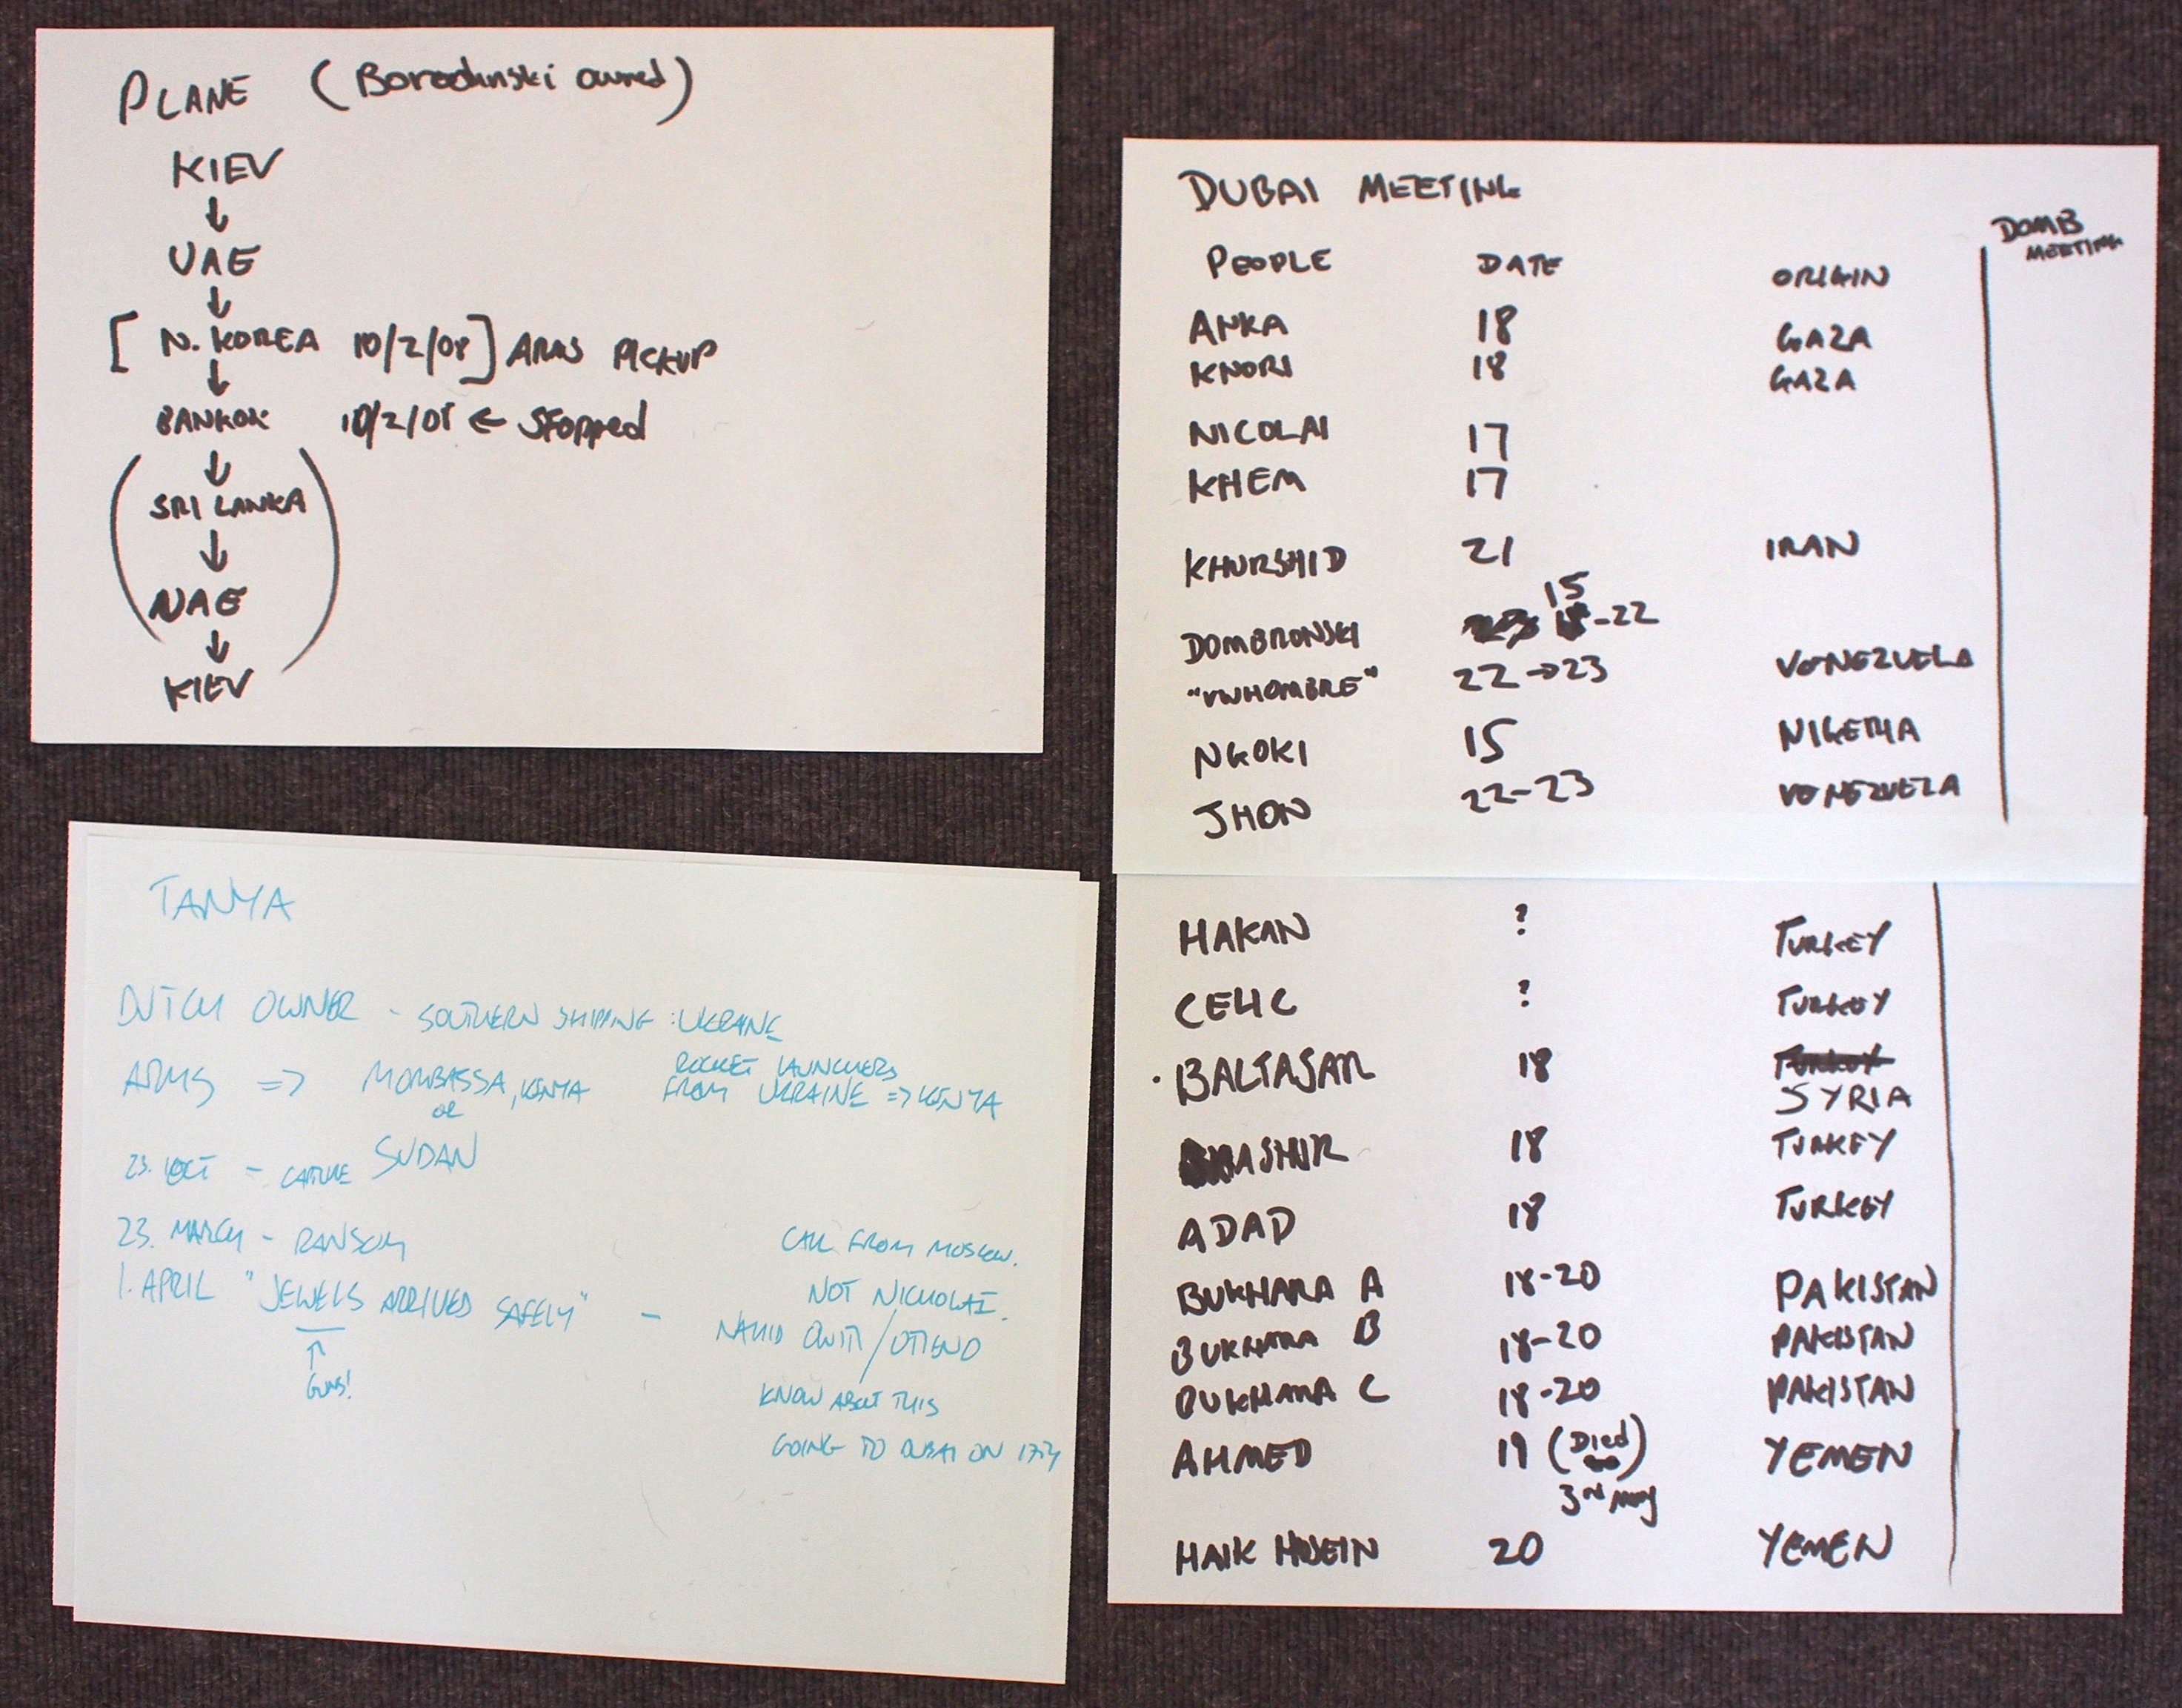 PLANE (Borodinski owned)
KIEV
↓
UAE
↓
[ N. KOREA 10/2/08 ] ARMS PICKUP
↓
BANKOK 10/2/08 ← Stopped
↓
( SRI LANKA
↓
UAE )
↓
KIEV
DUBAI MEETING
DOMB MEETING
PEOPLE DATE ORIGIN
ANKA 18 GAZA
KHORI 18 GAZA
NICOLAI 17
KHEM 17
KHURSHID 21 IRAN
15
DOMBROVSKI -22
"VWHOMBRE" 22→23 VENEZUELA
NGOKI 15 NIGERIA
JHON 22-23 VENEZUELA
HAKAN ? TURKEY
CELIC ? TURKEY
· BALTASAR 18 TURKEY
SYRIA
BASHIR 18 TURKEY
ADAD 18 TURKEY
BUKHARA A 18-20 PAKISTAN
BUKHARA B 18-20 PAKISTAN
BUKHARA C 18-20 PAKISTAN
AHMED 19 (Died) YEMEN
3rd May
HAIK HUSEIN 20 YEMEN
TANYA
DUTCH OWNER - SOUTHERN SHIPPING : UKRAINE
ARMS => MOMBASSA, KENYA
or
SUDAN
ROCKET LAUNCHERS
FROM UKRAINE => KENYA
23. OCT - CAPTURE
23. MARCH - RANSOM
1. APRIL "JEWELS ARRIVED SAFELY" -
↑
GUNS!
CALL FROM MOSCOW.
NOT NICHOLAI.
NAHID OWITI / OTIENO
KNOW ABOUT THIS
GOING TO DUBAI ON 17th